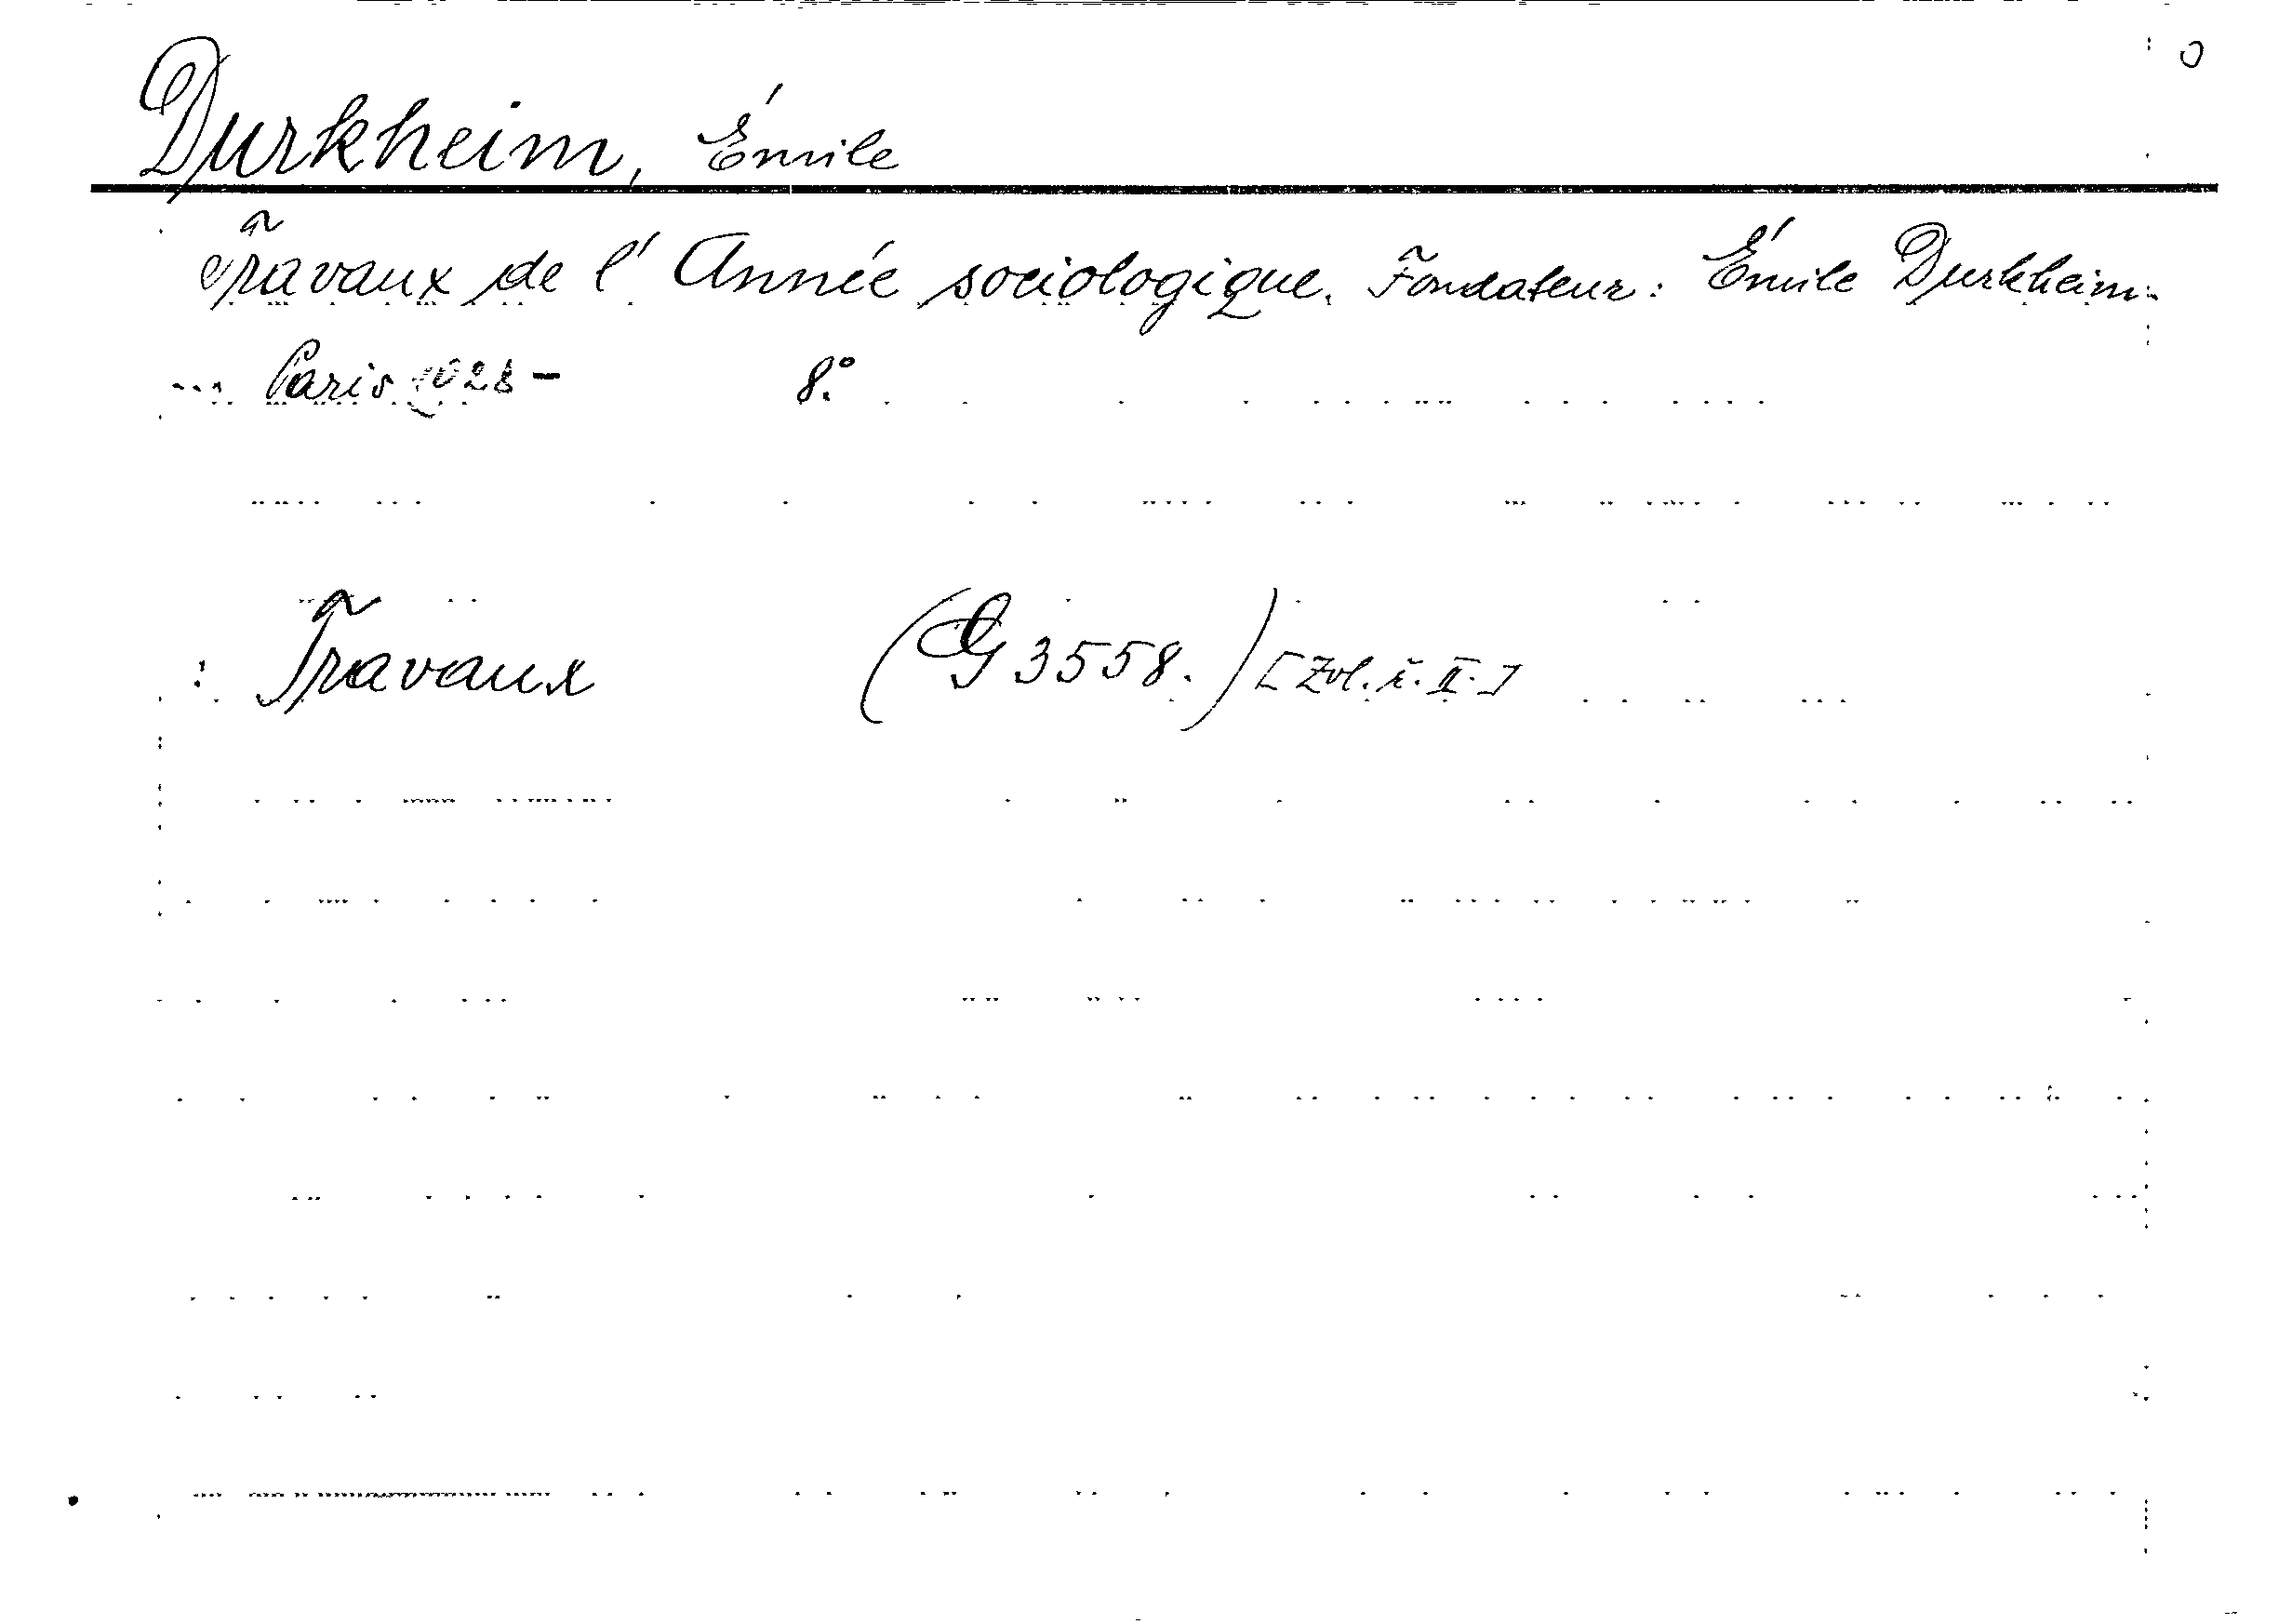 Durkheim, Émile
Travaux de l'Année sociologique. Fondateur: Émile Durkheim.
... Paris 1928 - 8°.
: Travaux (G 3558.) [Zvl. ř. II.]